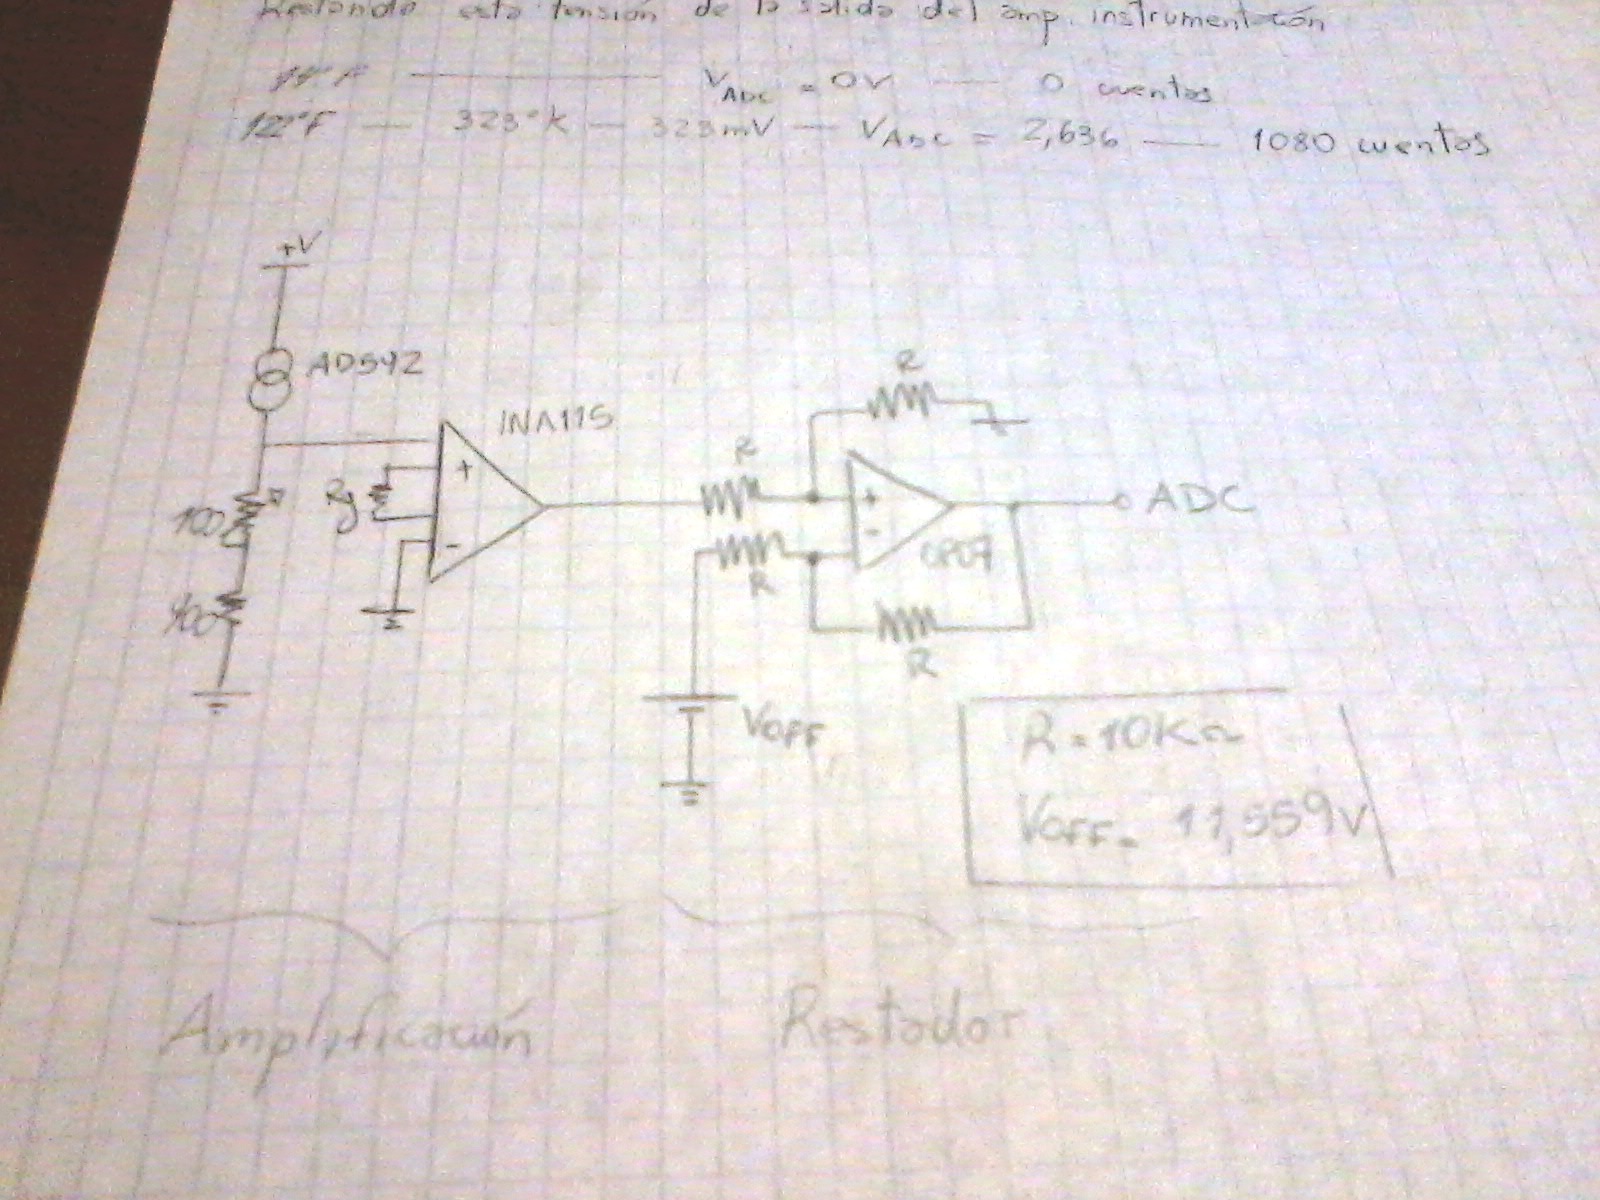 Restando esta tensión de la salida del amp. instrumentación
14°F — V_ADC = 0V — 0 cuentas
122°F — 323°K — 323mV — V_ADC = 2,636 — 1080 cuentas
+V
AD592
INA115
R
R
+
Rg
100
+
ADC
-
-
R
OP07
900
R
VOFF
R = 10KΩ
VOFF = 11,559V
Amplificación
Restador